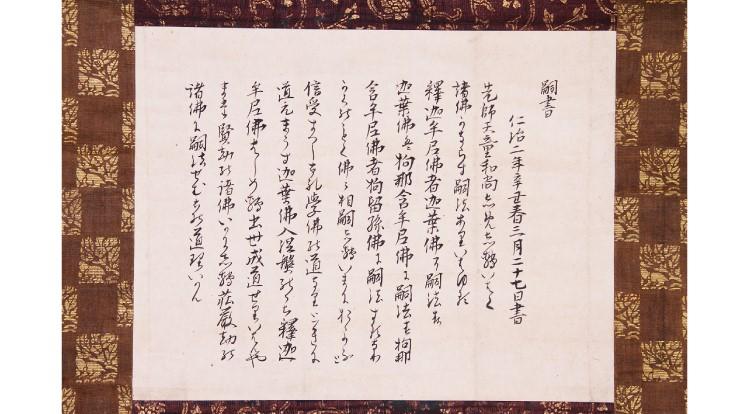 嗣書
仁治二年辛丑春三月二十七日書
先師天童和尚志めして いはく
諸佛かならす嗣法あり いはゆる
釋迦牟尼佛者迦葉佛に嗣法す
迦葉佛者拘那含牟尼佛に嗣法す 拘那
含牟尼佛者拘留孫佛に嗣法するなり
かくのことく佛々相嗣していまにいたると
信受すへしこれ學佛の道なりときに
道元まうす迦葉佛入涅槃ののち釋迦
牟尼佛はしめて出世成道せりいはんや
また賢劫の諸佛いかにして莊嚴劫の
諸佛に嗣法せむこの道理いかん